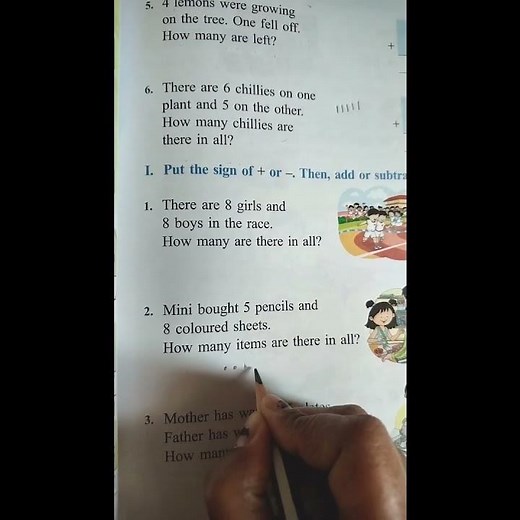 5. 4 lemons were growing
on the tree. One fell off.
How many are left?
+
6. There are 6 chillies on one
plant and 5 on the other.
How many chillies are
there in all?
+
I. Put the sign of + or –. Then, add or subtra
1. There are 8 girls and
8 boys in the race.
How many are there in all?
2. Mini bought 5 pencils and
8 coloured sheets.
How many items are there in all?
3. Mother has
Father has
How